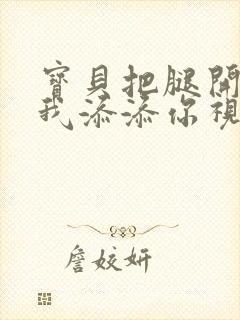 寶貝把腿開
我添添你視
詹姣妍